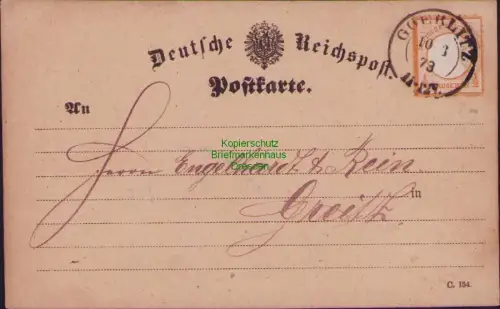 Deutsche Reichspost.
GOERLITZ
10 3
73
Postkarte.
An
Kopierschutz
Briefmarkenhaus
Herrn Engelhardt & Rein
in
Greitz
C. 154.